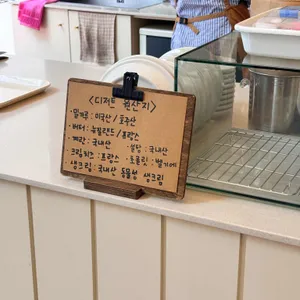 <디저트 원산지>
·밀가루 : 미국산 / 호주산
·버터 : 뉴질랜드 / 프랑스
·계란 : 국내산 ·설탕 : 국내산
·크림치즈 : 프랑스 ·초콜릿 : 벨기에
·생크림 : 국내산 동물성 생크림